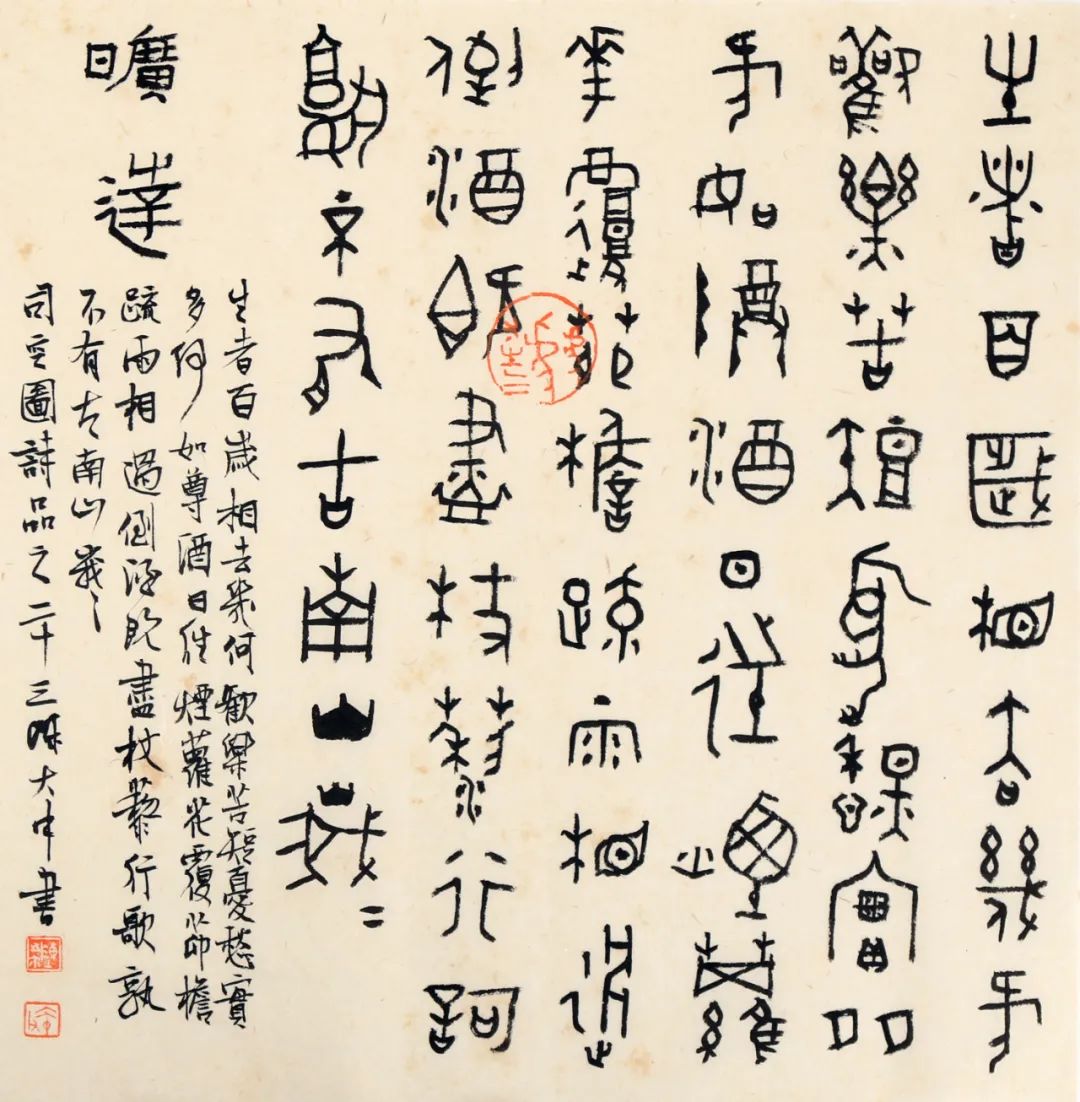 生者百歲相去幾何
歡樂苦短憂愁實多
何如尊酒日往煙蘿
花覆茆檐疏雨相過
倒酒既盡杖藜行歌
孰不有古南山峩=
曠達
生者百歲相去幾何歡樂苦短憂愁實
多何如尊酒日往煙蘿花覆茆檐
疏雨相過倒酒既盡杖藜行歌孰
不有古南山峩〻
司空圖詩品之二十三陳大中書